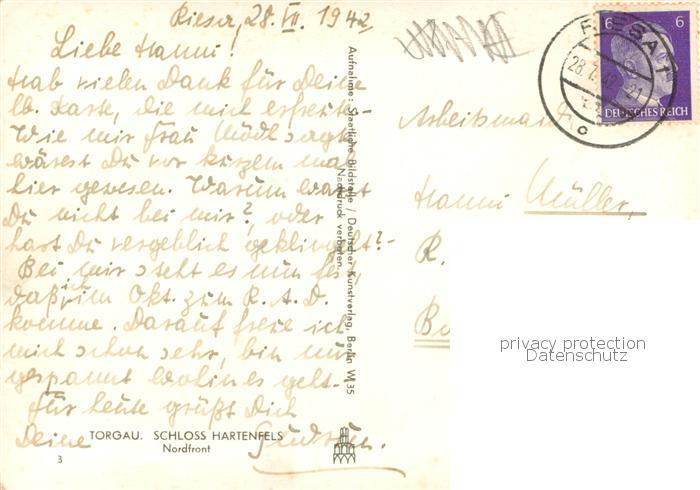 Riesa, 28. VII. 1942
Liebe Hanni!
Hab vielen Dank für Deine
lb. Karte, die mich erfreute.
Wie mir Frau Mödl sagte
wärest Du vor kurzem mal
hier gewesen. Warum warst
Du nicht bei mir?, oder
hast Du vergeblich geklingelt?-
Bei mir steht es nun fest,
daß ich im Okt. zum R. A. D.
komme. Darauf freue ich
mich schon sehr, bin nur
gespannt wohin es geht.-
Für heute grüßt Dich
Deine Gudrun.
TORGAU. SCHLOSS HARTENFELS
Nordfront
3
Aufnahme: Staatliche Bildstelle / Deutscher Kunstverlag, Berlin W 35
Nachdruck verboten.
RIESA 1
28.7.42
c
6 6
DEUTSCHES REICH
Hanni Müller,
R.
privacy protection
Datenschutz